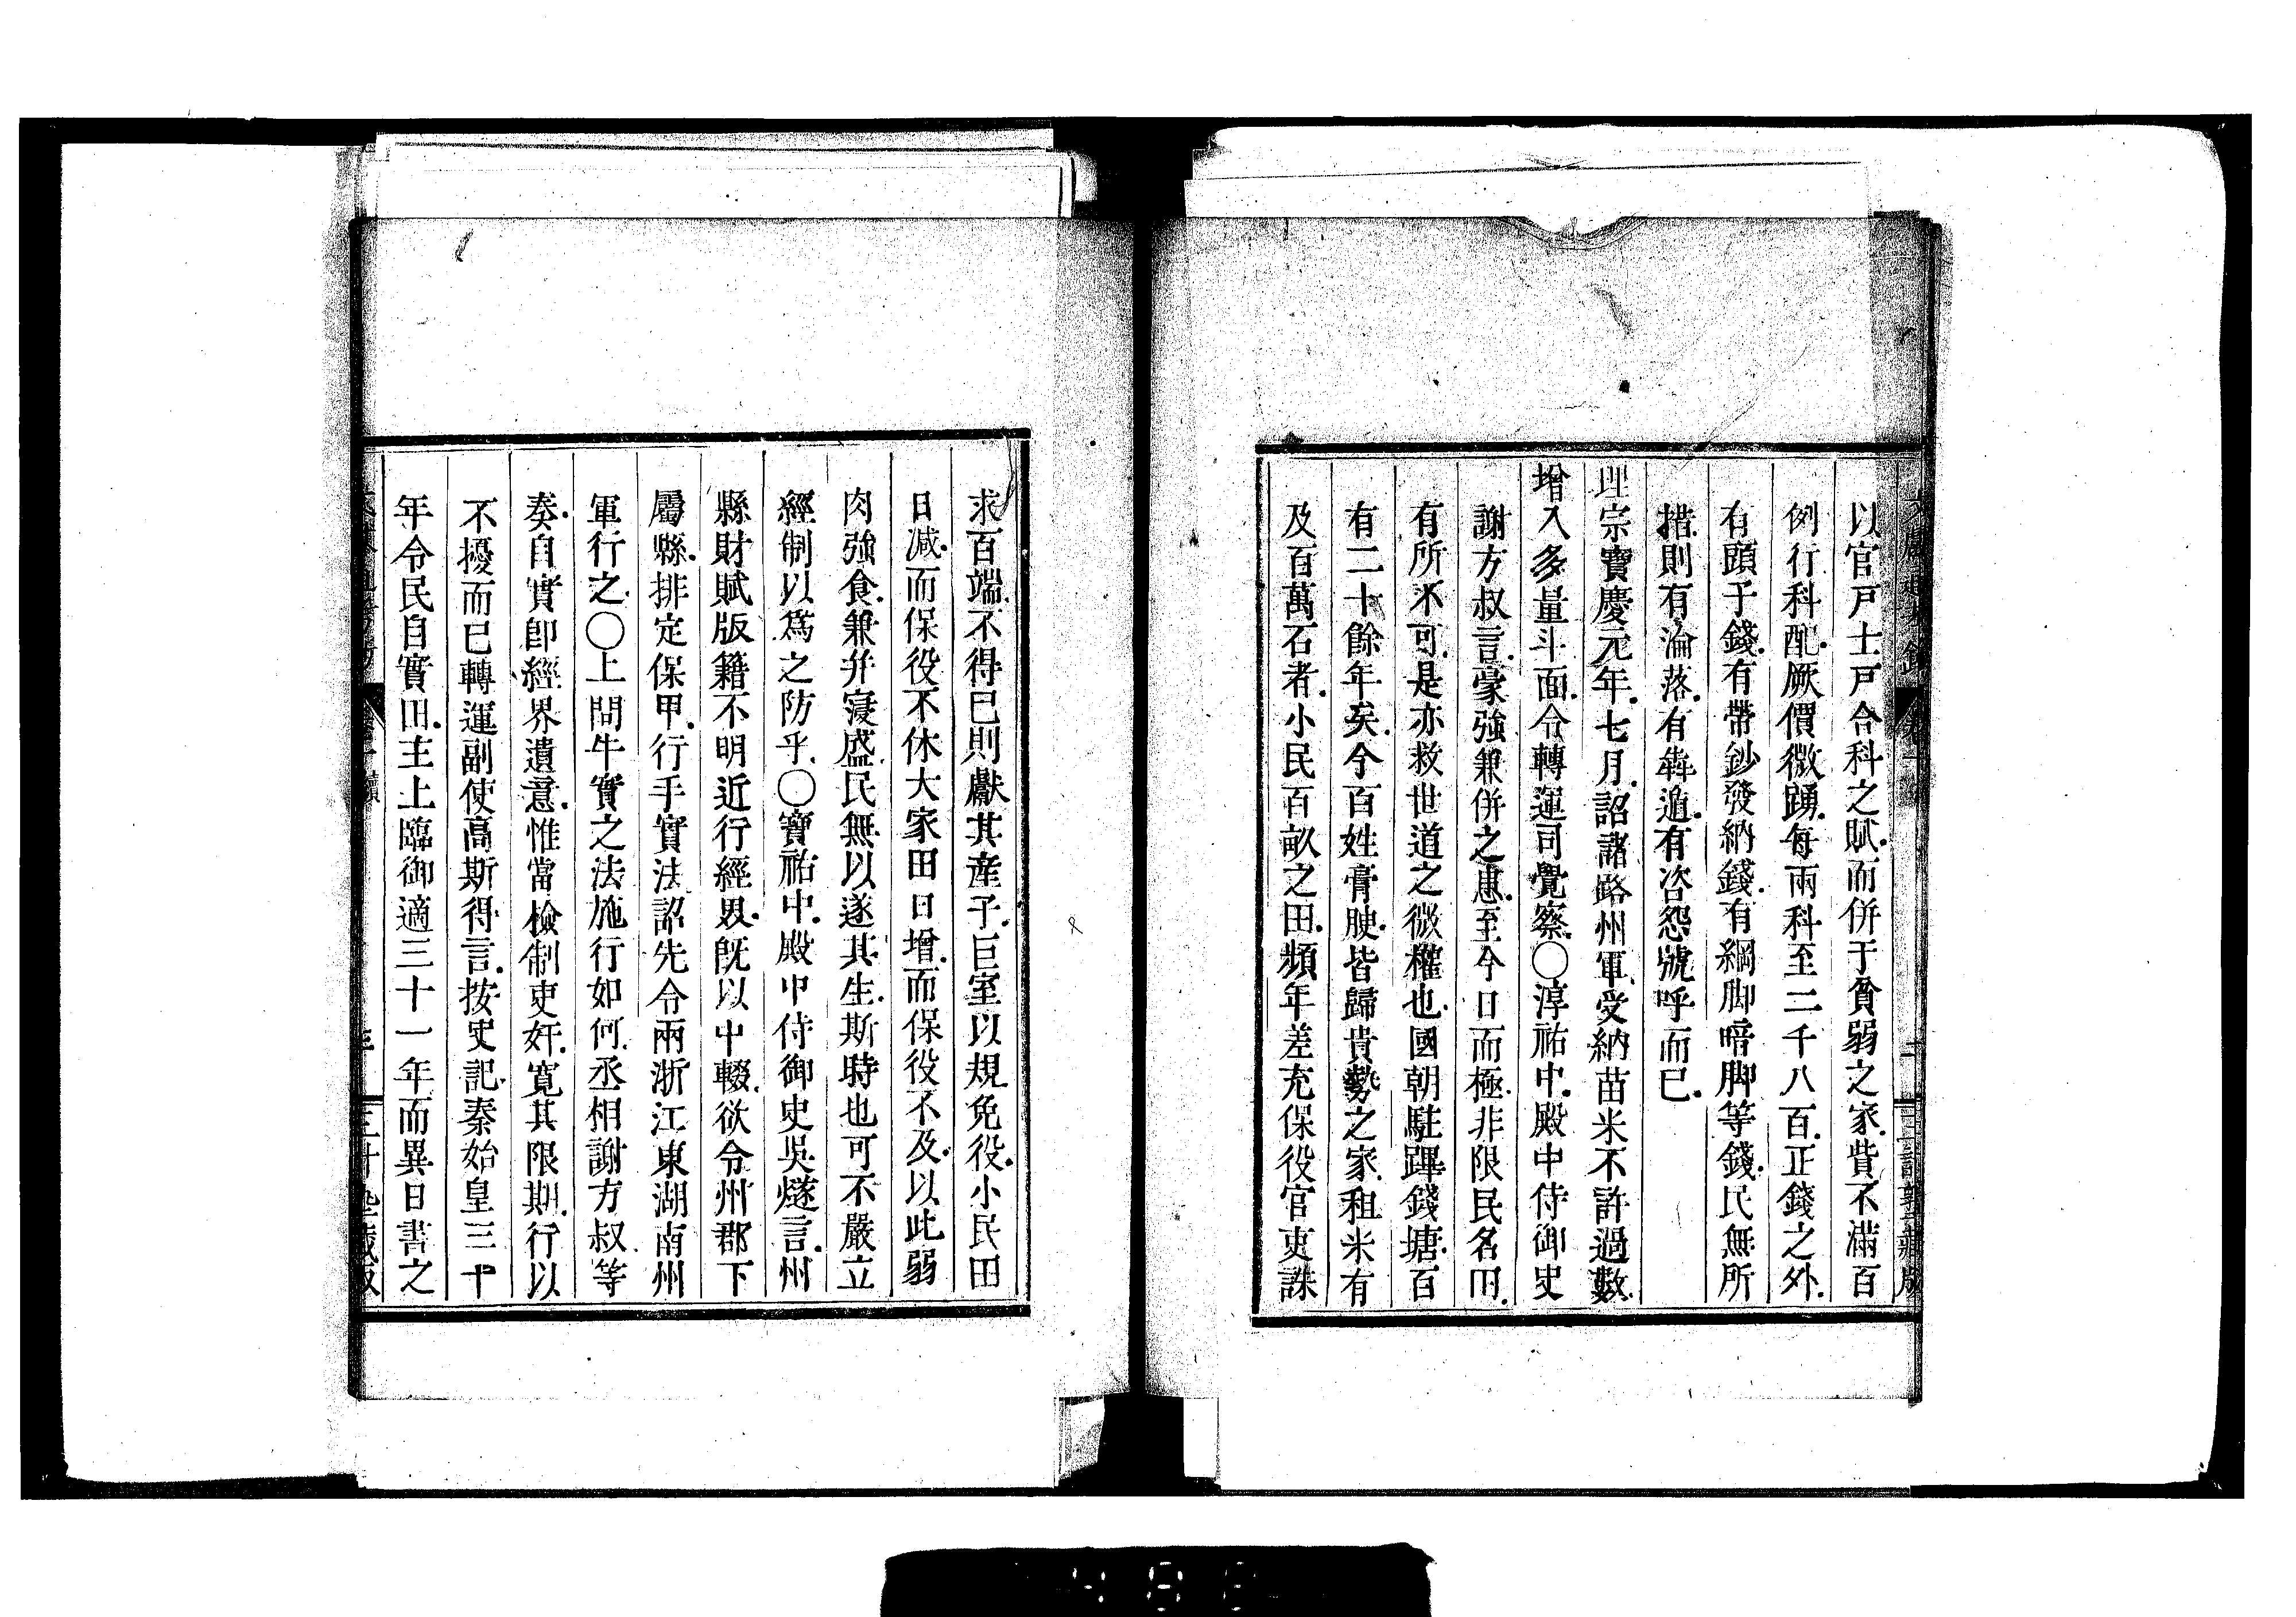 以官戸士戸合科之賦而併于貧弱之家貲不滿百
例行科配厥價微踴每兩科至二千八百正錢之外
有頭子錢有帶鈔發納錢有綱脚暗脚等錢民無所
措則有淪落有犇逋有咨怨號呼而已
理宗寶慶元年七月詔諸路州軍受納苗米不許過數
增入多量斗面令轉運司覺察〇淳祐中殿中侍御史
謝方叔言豪強兼併之患至今日而極非限民名田
有所不可是亦救世道之微權也國朝駐蹕錢塘百
有二十餘年矣今百姓膏腴皆歸貴勢之家租米有
及百萬石者小民百畝之田頻年差充保役官吏誅
求百端不得已則獻其產于巨室以規免役小民田
日減而保役不休大家田日增而保役不及以此弱
肉強食兼并寖盛民無以遂其生斯時也可不嚴立
經制以爲之防乎〇寶祐中殿中侍御史吳燧言州
縣財賦版籍不明近行經界既以中輟欲令州郡下
屬縣排定保甲行手實法詔先令兩浙江東湖南州
軍行之〇上問手實之法施行如何丞相謝方叔等
奏自實卽經界遺意惟當檢制吏奸寬其限期行以
不擾而已轉運副使高斯得言按史記秦始皇三十
年令民自實田主上臨御適三十一年而異日書之